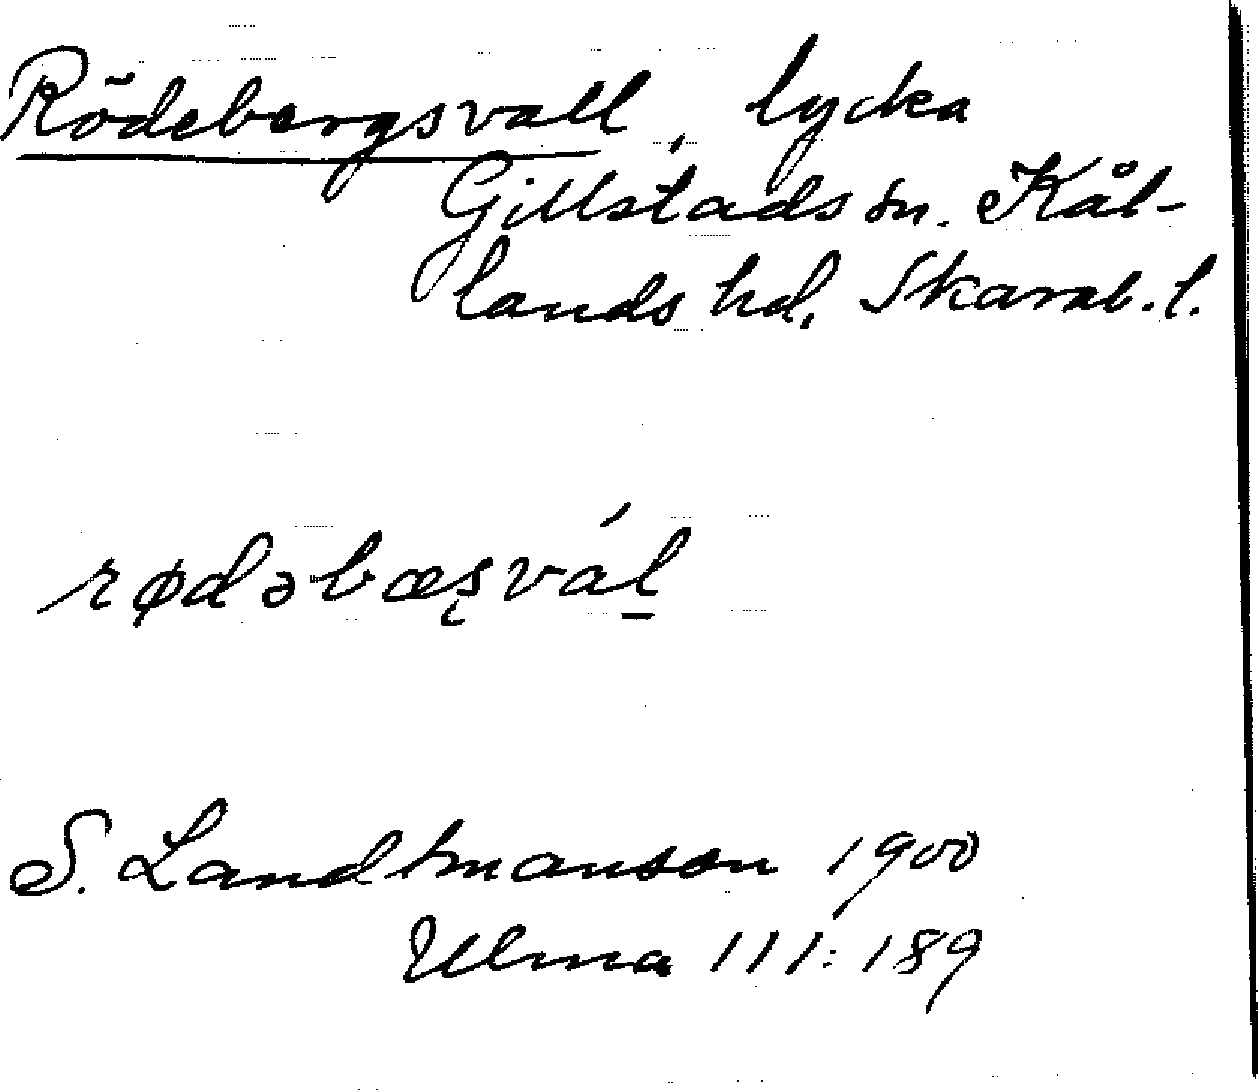 Rödebergsvall, lycka
Gillstads sn. Kål-
lands hd. Skarab. l.
rødəbæșvál̠
S. Landtmanson 1900
Ulma 111:189